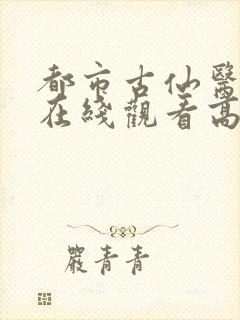 都市古仙醫
在綫觀看高
嚴青青